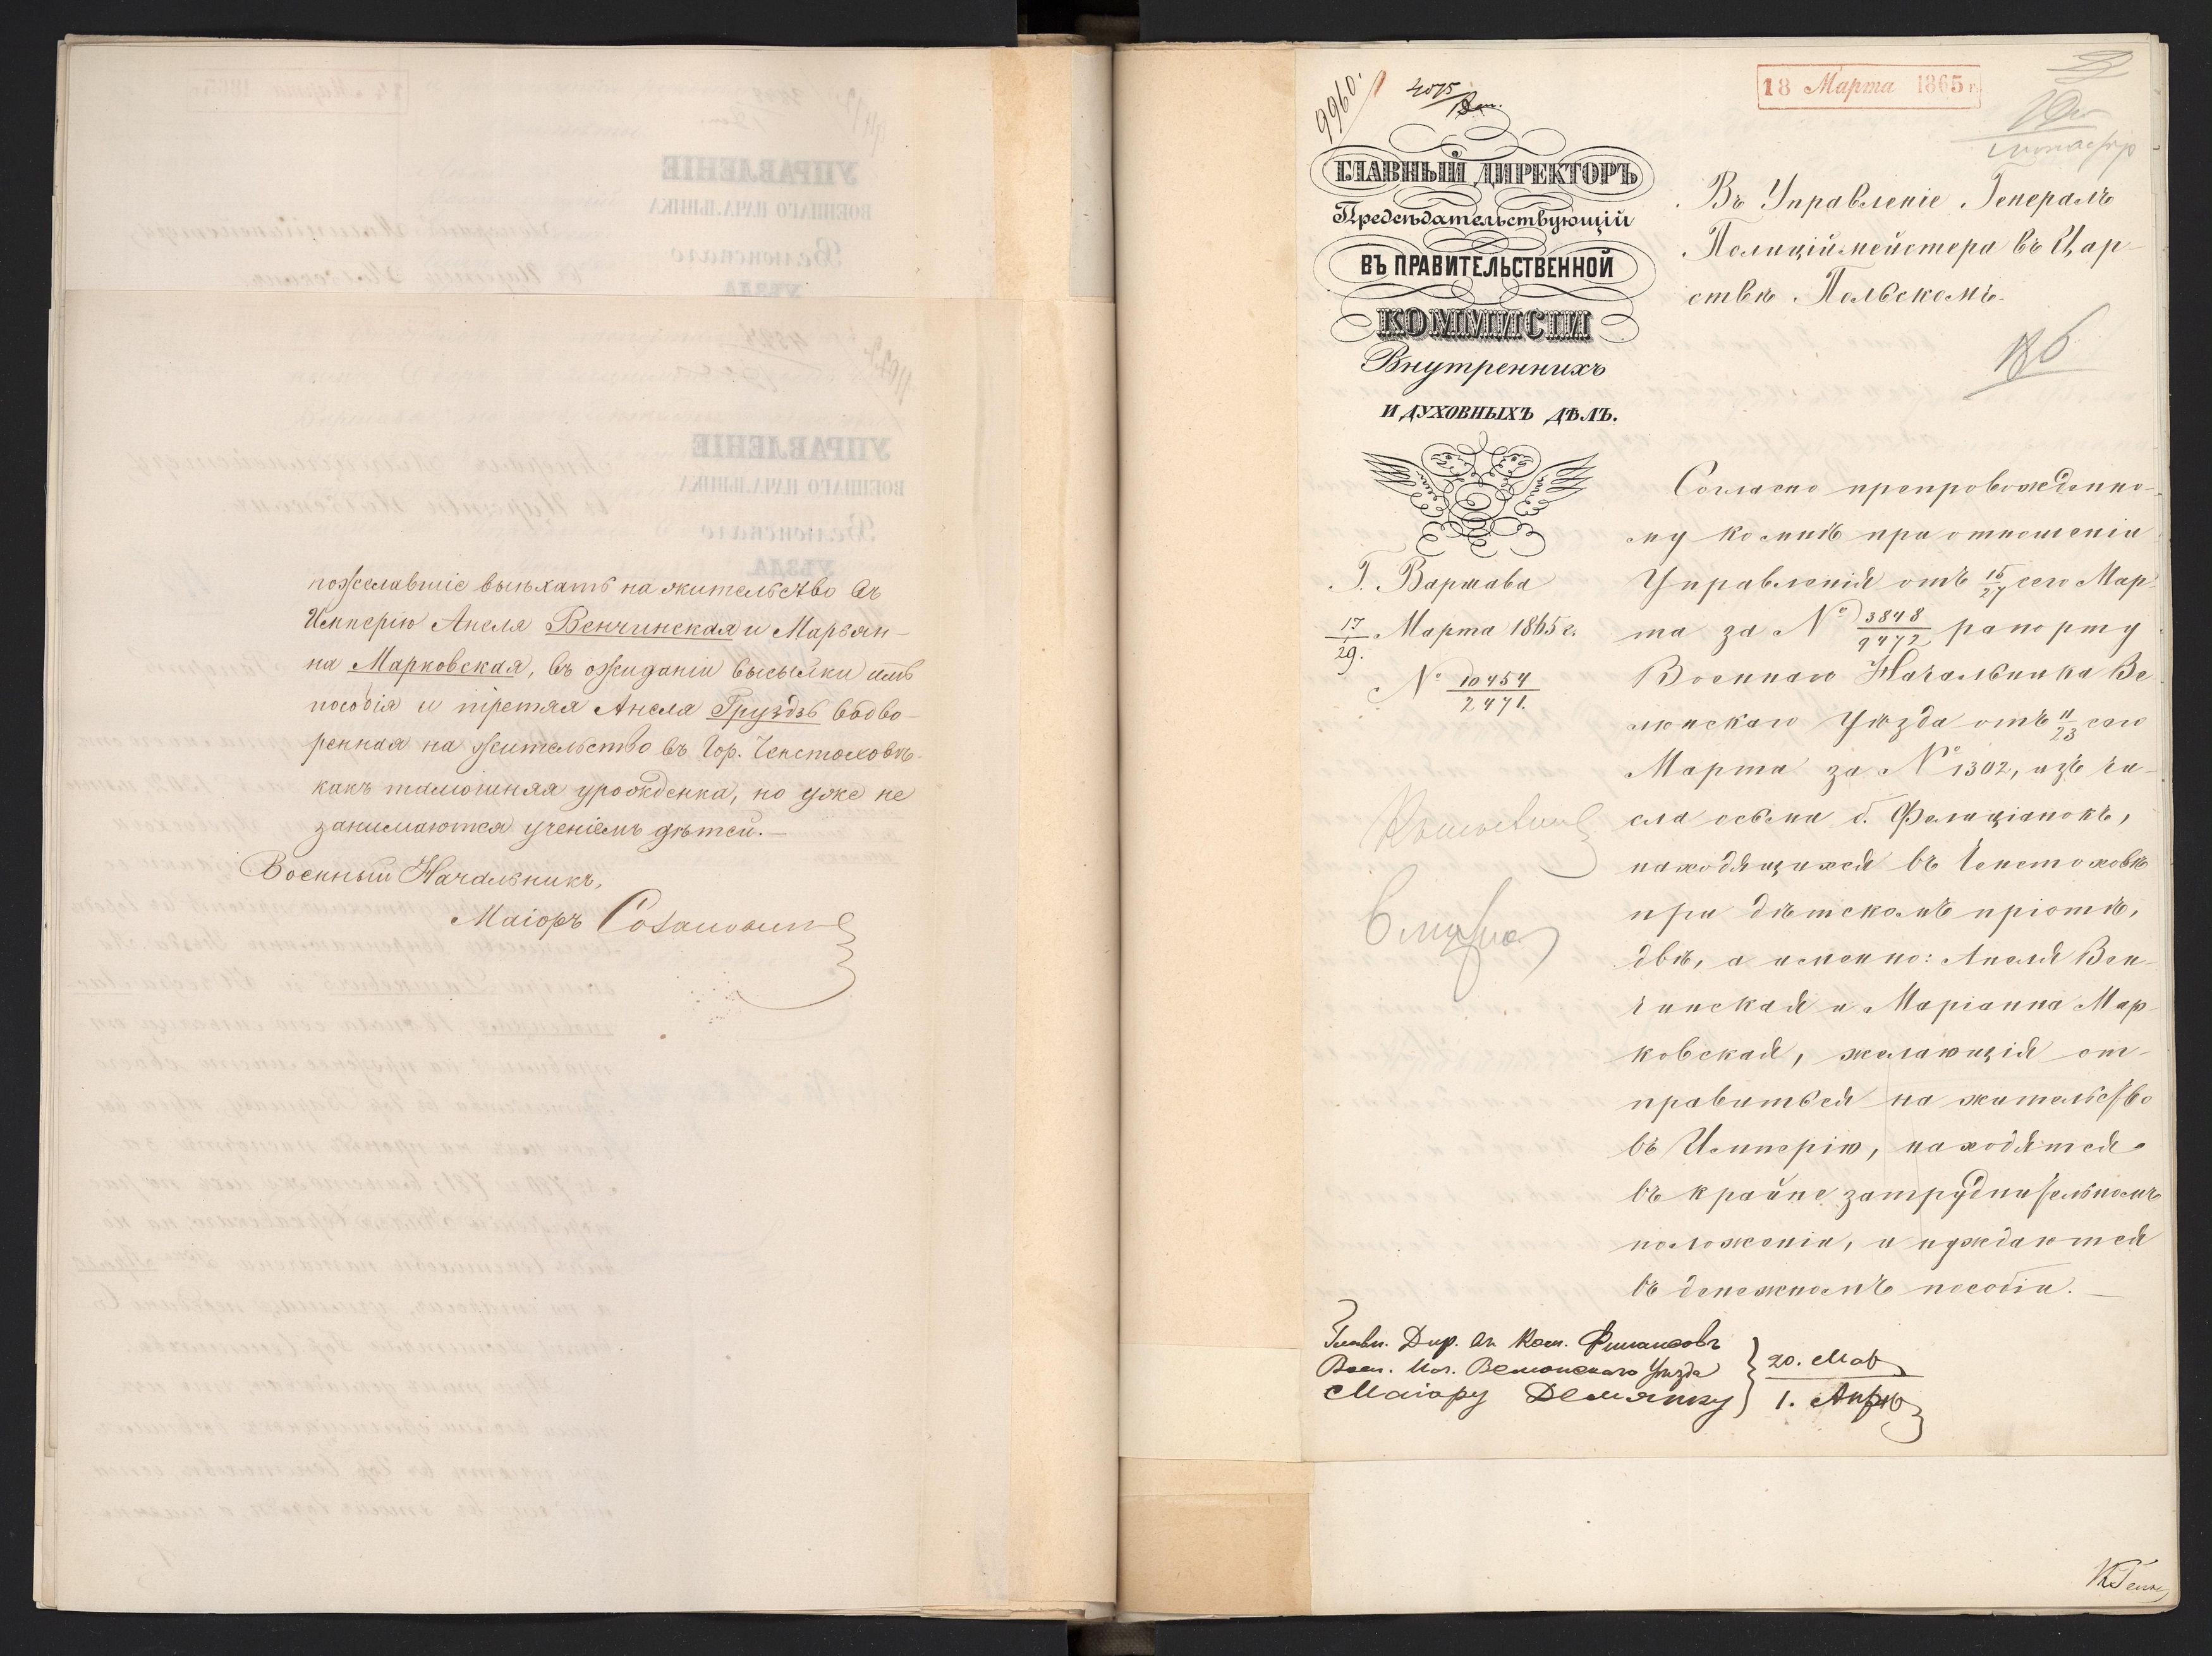 пожелавшіе выѣхать на жительство въ
Имперію Анеля Венчинская и Марьян-
на Марковская, въ ожиданіи высылки имъ
пособія и третяя Анеля Груздзь водво-
ренная на жительство въ Гор. Ченстоховѣ
какъ тамошняя урожденка, но уже не
занимаются ученіемъ дѣтей.—
Военный Начальникъ,
Маіоръ
9960.
4075
18 Марта 1865 г.
ГЛАВНЫЙ ДИРЕКТОРЪ
Предсѣдательствующій
ВЪ ПРАВИТЕЛЬСТВЕННОЙ
КОММИСІИ
Внутреннихъ
И ДУХОВНЫХЪ ДѢЛЪ.
Г. Варшава
17/29. Марта 1865 г.
№ 10454/2471.
Въ Управленіе Генералъ
Полиціймейстера въ Цар-
ствѣ Польскомъ.
Согласно препровожденно-
му комнѣ при отношеніи
Управленія отъ 15/27 сего Мар-
та за № 3848/9472 рапорту
Военнаго Начальника Ве-
люнскаго Уѣзда отъ 11/23 сего
Марта за № 1302, изъ чи-
сла осьми б. Фелиціанокъ,
находящихся въ Ченстоховѣ
при дѣтскомъ пріютѣ,
двѣ, а именно: Анеля Вен-
чинская и Маріанна Мар-
ковская, желающія от-
правиться на жительство
въ Имперію, находятся
въ крайне затруднительномъ
положеніи, и нуждаются
въ денежномъ пособіи.—
Главн. Дир. въ Ком. Финансовъ
Воен. Нач. Велюнскаго Уѣзда
Маіору Демяшку
20. Мар
1. Апрѣ